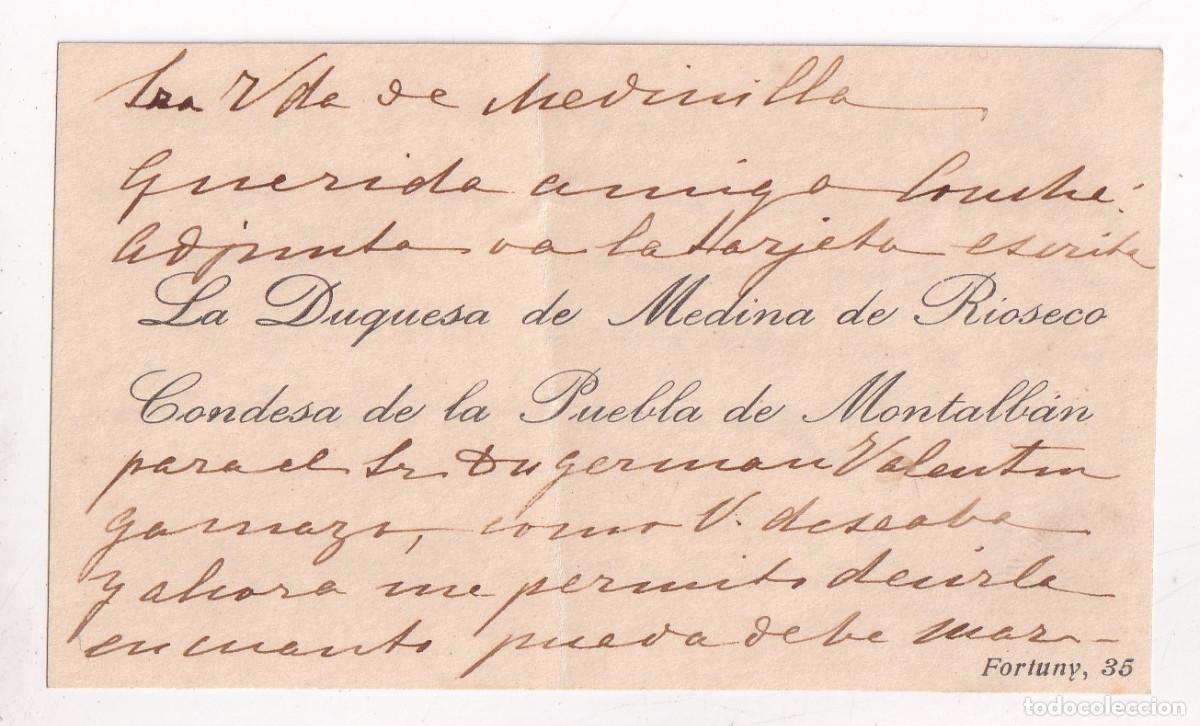 Sra Vda de Medinilla
Querida amiga Conche:
Adjunta va la tarjeta escrita
La Duquesa de Medina de Rioseco
Condesa de la Puebla de Montalbán
para el Sr Dn German Valentin
Gamazo, como V. deseaba
y ahora me permito decirle
en cuanto pueda debe mar-
Fortuny, 35
todocoleccion